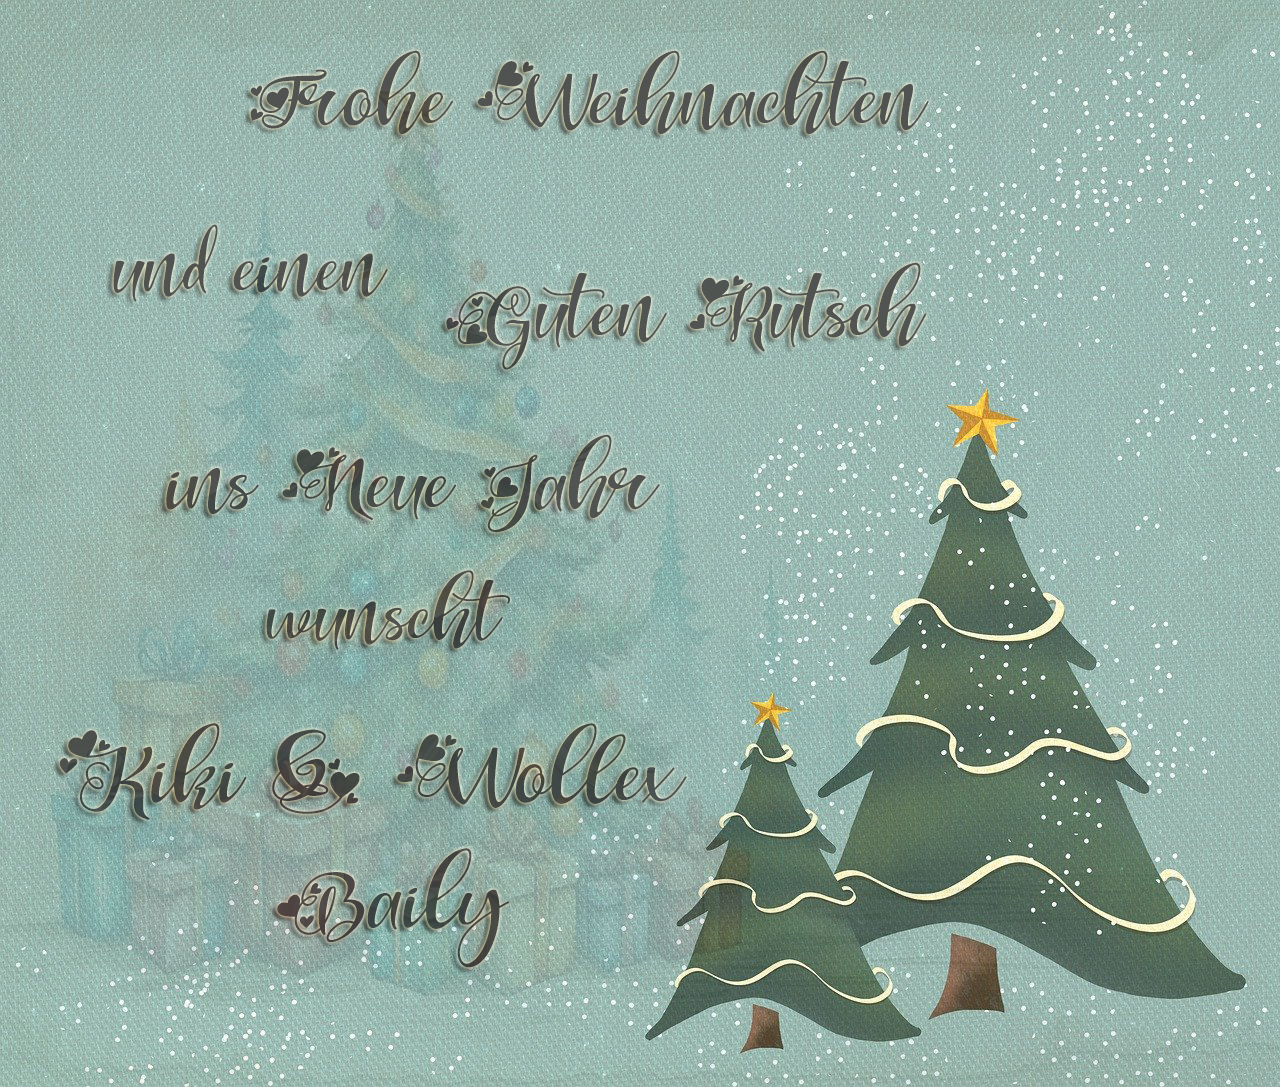 Frohe Weihnachten
und einen
Guten Rutsch
ins Neue Jahr
wunscht
Kiki & Wollex
Baily